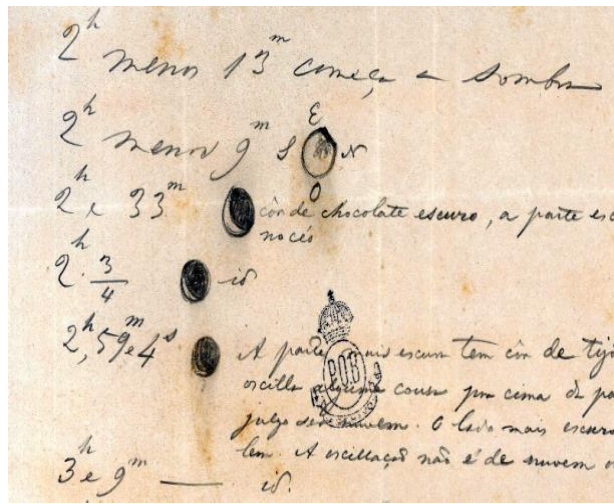 2h menos 13m começa a sombra
E
2h menos 9m S N
O
2h e 33m côr de chocolate escuro, a parte esc
no céo
2h 3/4 id
2h, 59m e 4s A parte mais escura tem côr de tijo
oscilla alguma cousa por cima da pa
P.O.B
julgo ser nuvem. O lado mais escuro
lem. A oscillação não é de nuvem o
3h e 9m — id.